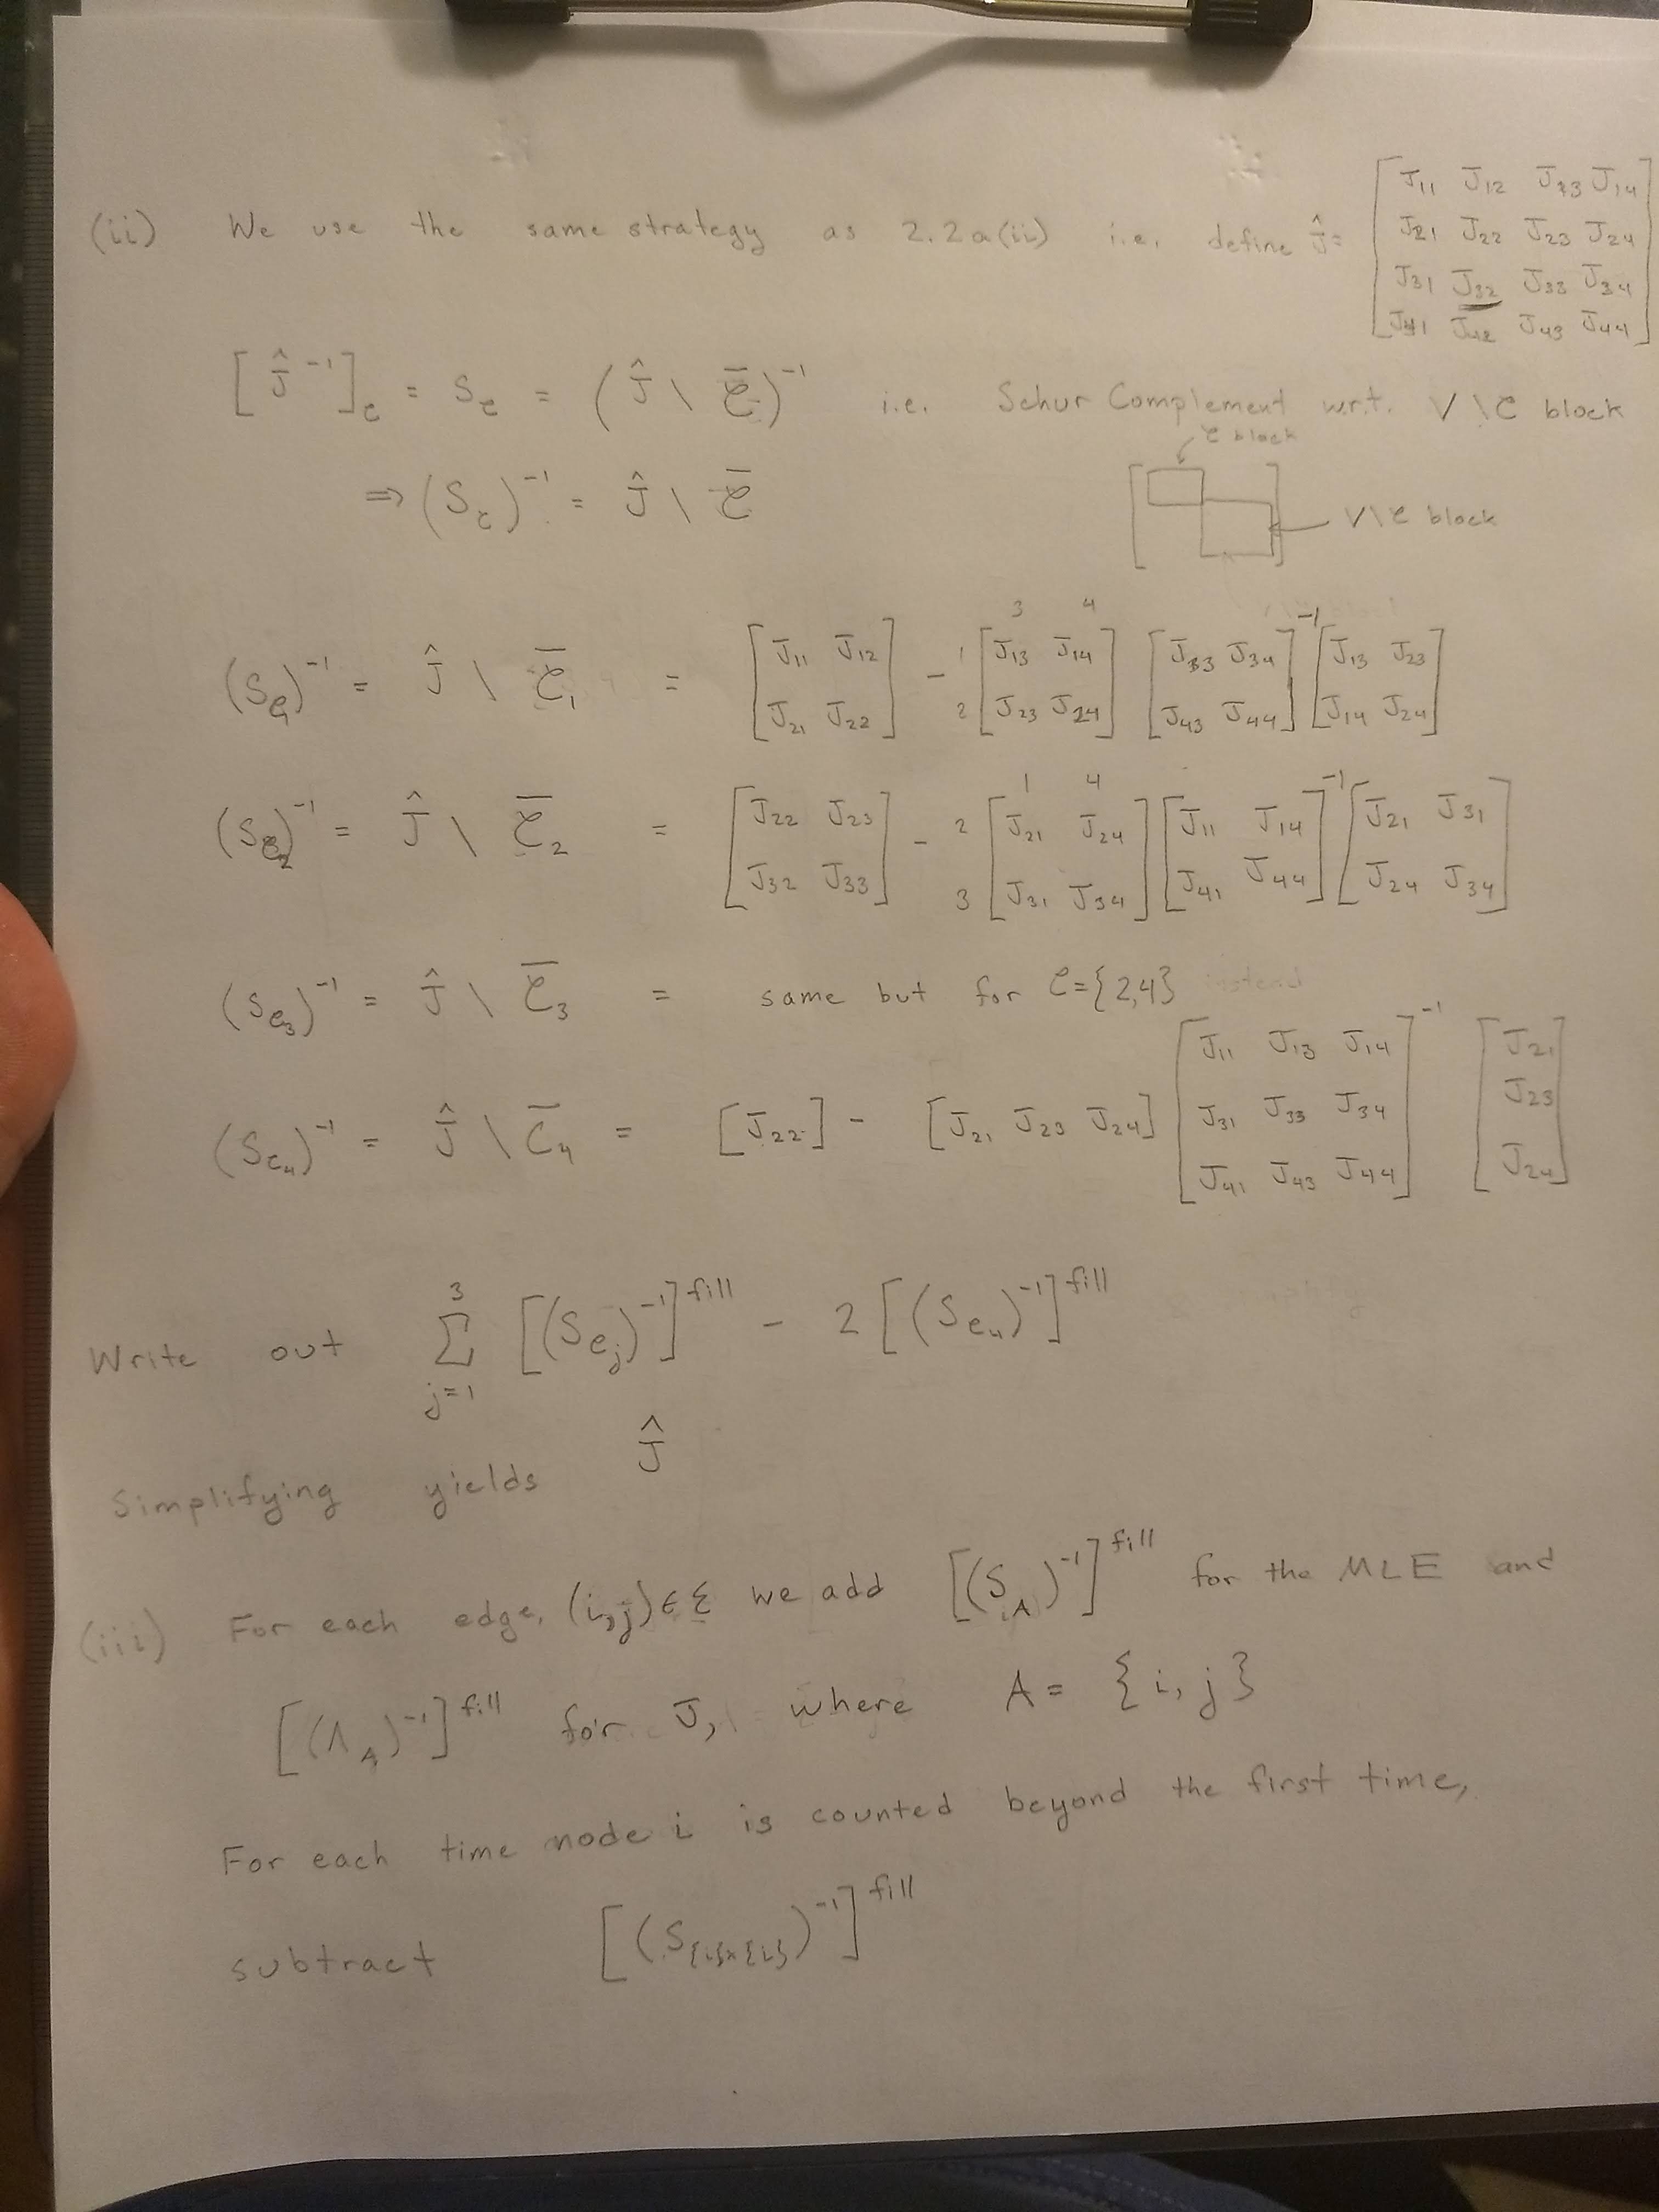 (ii) We use the same strategy as 2.2a(ii) i.e. define Ĵ = [J₁₁ J₁₂ J₂₃ J₁₄
J₂₁ J₂₂ J₂₃ J₂₄
J₃₁ J₃₂ J₃₃ J₃₄
J₄₁ J₄₂ J₄₃ J₄₄]
[Ĵ⁻¹]_C = S_C = (Ĵ \ C̄)⁻¹ i.e. Schur Complement w.r.t. V\C block
C block
⇒ (S_C)⁻¹ = Ĵ \ C̄
V\C block
(S_C₁)⁻¹ = Ĵ \ C̄₁ = [J₁₁ J₁₂; J₂₁ J₂₂] - 1 2 3 4 [J₁₃ J₁₄; J₂₃ J₂₄] [J₃₃ J₃₄; J₄₃ J₄₄]⁻¹ [J₁₃ J₂₃; J₁₄ J₂₄]
(S_C₂)⁻¹ = Ĵ \ C̄₂ = [J₂₂ J₂₃; J₃₂ J₃₃] - 2 3 1 4 [J₂₁ J₂₄; J₃₁ J₃₄] [J₁₁ J₁₄; J₄₁ J₄₄]⁻¹ [J₂₁ J₃₁; J₂₄ J₃₄]
(S_C₃)⁻¹ = Ĵ \ C̄₃ = same but for C={2,4} instead
(S_C₄)⁻¹ = Ĵ \ C̄₄ = [J₂₂] - [J₂₁ J₂₃ J₂₄] [J₁₁ J₁₃ J₁₄; J₃₁ J₃₃ J₃₄; J₄₁ J₄₃ J₄₄]⁻¹ [J₂₁; J₂₃; J₂₄]
Write out Σ_{j=1}^{3} [(S_Cⱼ)⁻¹]^fill - 2 [(S_C₄)⁻¹]^fill
Simplifying yields Ĵ
(iii) For each edge, (i,j) ∈ Ɛ we add [(S_A)⁻¹]^fill for the MLE and
[(Λ_A)⁻¹]^fill for J, where A = {i, j}
For each time node i is counted beyond the first time,
subtract [(S_{{i}×{i}})⁻¹]^fill